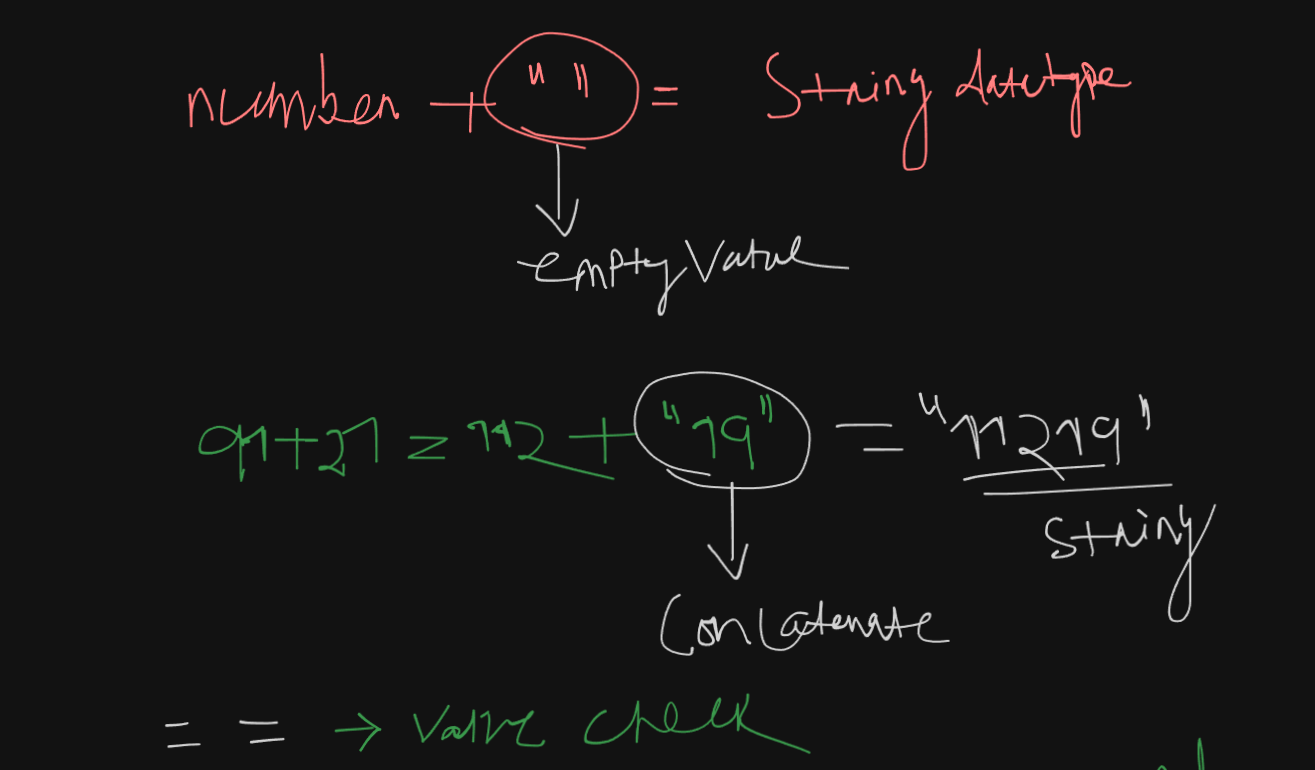 number + " " = String datatype
empty Value
91+21 = 112 + "19" = "11219"
String
Concatenate
= = → Value check